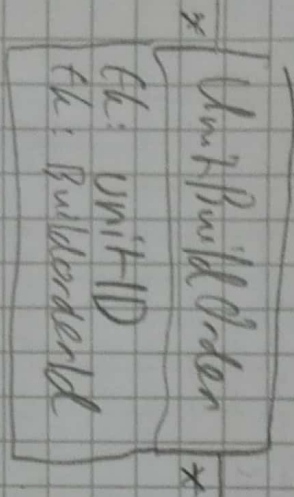 * UnitBuildOrder *
fk: UnitID
fk: BuildorderId